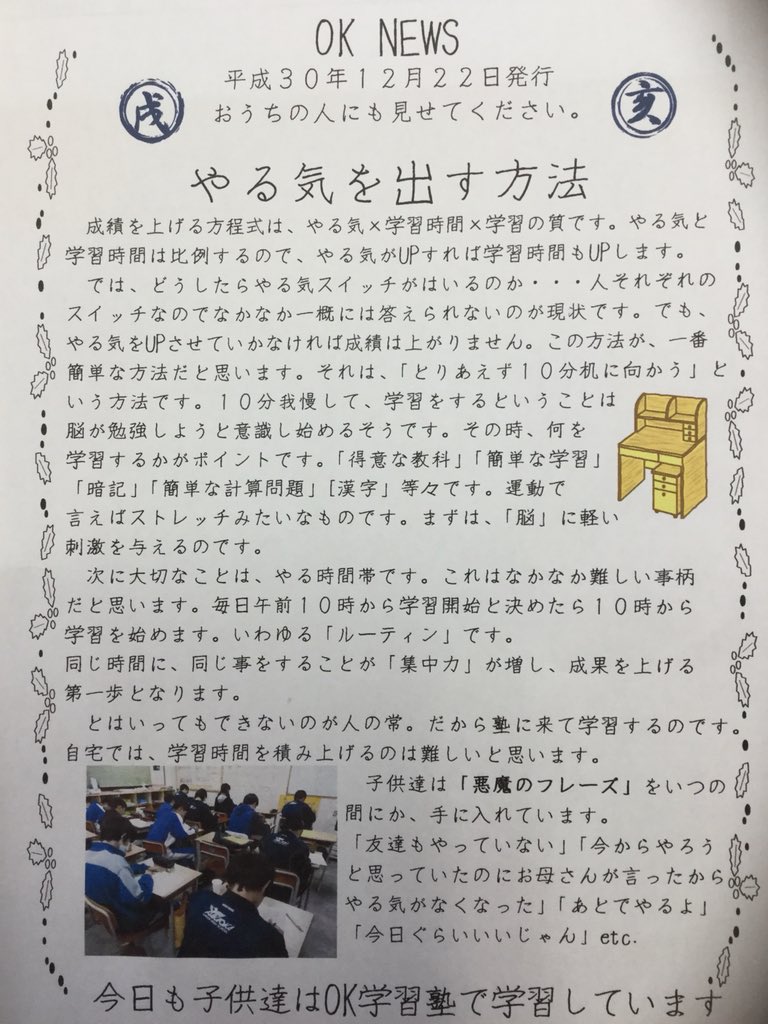 OK NEWS
平成３０年１２月２２日発行
おうちの人にも見せてください。
戌
亥
やる気を出す方法
成績を上げる方程式は、やる気×学習時間×学習の質です。やる気と
学習時間は比例するので、やる気がUPすれば学習時間もUPします。
では、どうしたらやる気スイッチがはいるのか・・・人それぞれの
スイッチなのでなかなか一概には答えられないのが現状です。でも、
やる気をUPさせていかなければ成績は上がりません。この方法が、一番
簡単な方法だと思います。それは、「とりあえず１０分机に向かう」と
いう方法です。１０分我慢して、学習をするということは
脳が勉強しようと意識し始めるそうです。その時、何を
学習するかがポイントです。「得意な教科」「簡単な学習」
「暗記」「簡単な計算問題」[漢字」等々です。運動で
言えばストレッチみたいなものです。まずは、「脳」に軽い
刺激を与えるのです。
次に大切なことは、やる時間帯です。これはなかなか難しい事柄
だと思います。毎日午前１０時から学習開始と決めたら１０時から
学習を始めます。いわゆる「ルーティン」です。
同じ時間に、同じ事をすることが「集中力」が増し、成果を上げる
第一歩となります。
とはいってもできないのが人の常。だから塾に来て学習するのです。
自宅では、学習時間を積み上げるのは難しいと思います。
子供達は「悪魔のフレーズ」をいつの
間にか、手に入れています。
「友達もやっていない」「今からやろう
と思っていたのにお母さんが言ったから
やる気がなくなった」「あとでやるよ」
「今日ぐらいいいじゃん」etc.
今日も子供達はOK学習塾で学習しています